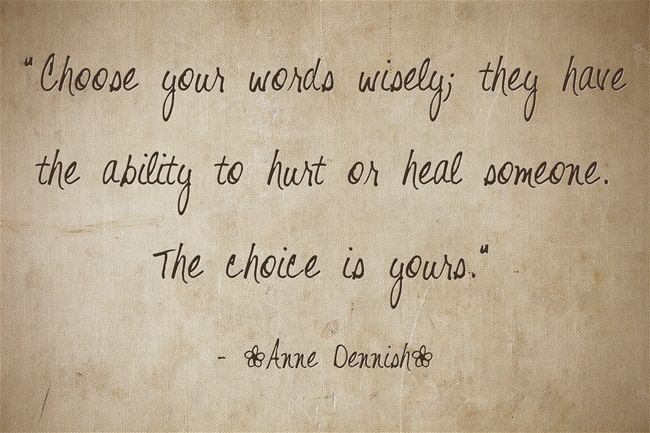 "Choose your words wisely; they have
the ability to hurt or heal someone.
The choice is yours."
- ❀Anne Dennish❀